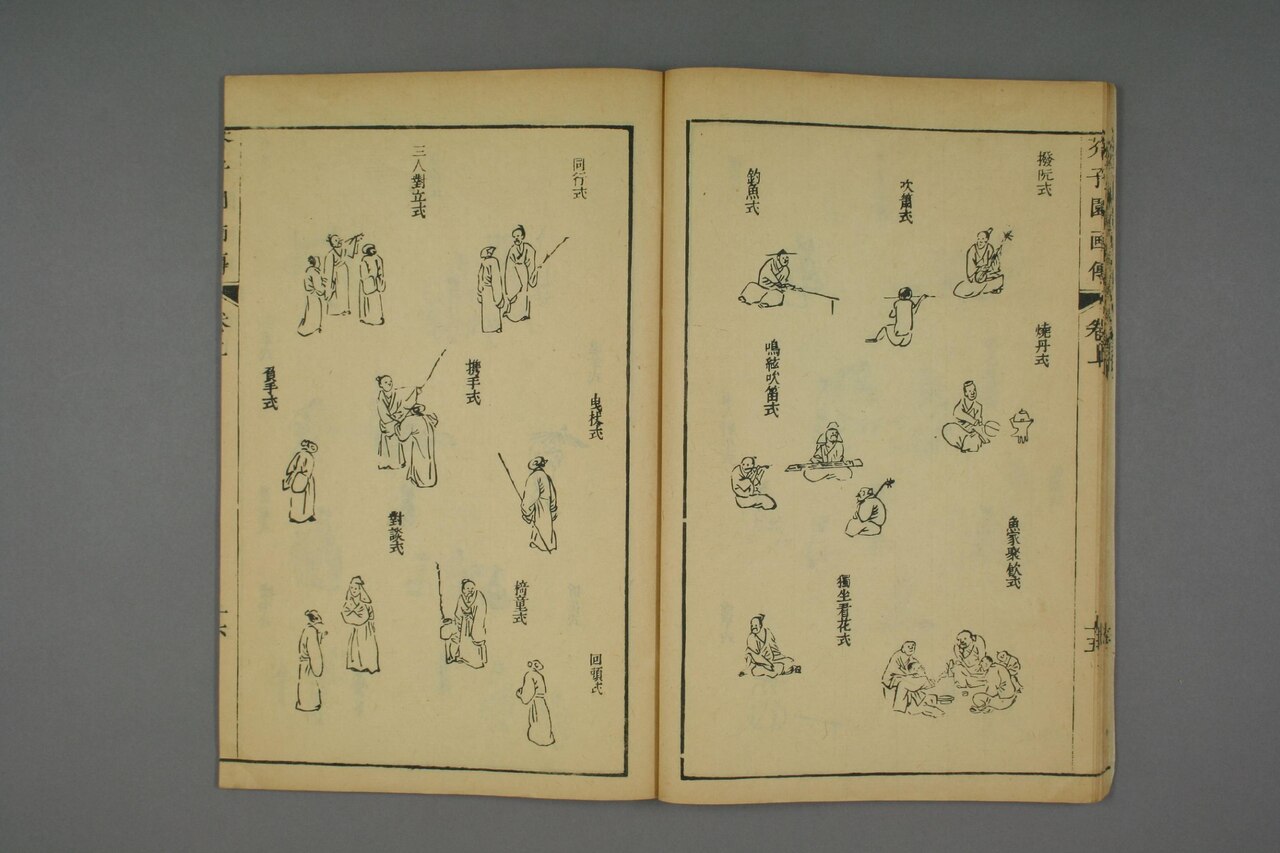 芥子園画傳
卷五
十五
撥阮式
吹笛式
釣魚式
燒丹式
鳴絃吹笛式
魚家聚飲式
獨坐看花式
同行式
三人對立式
曳杖式
携手式
負手式
對談式
椅童式
回頭式